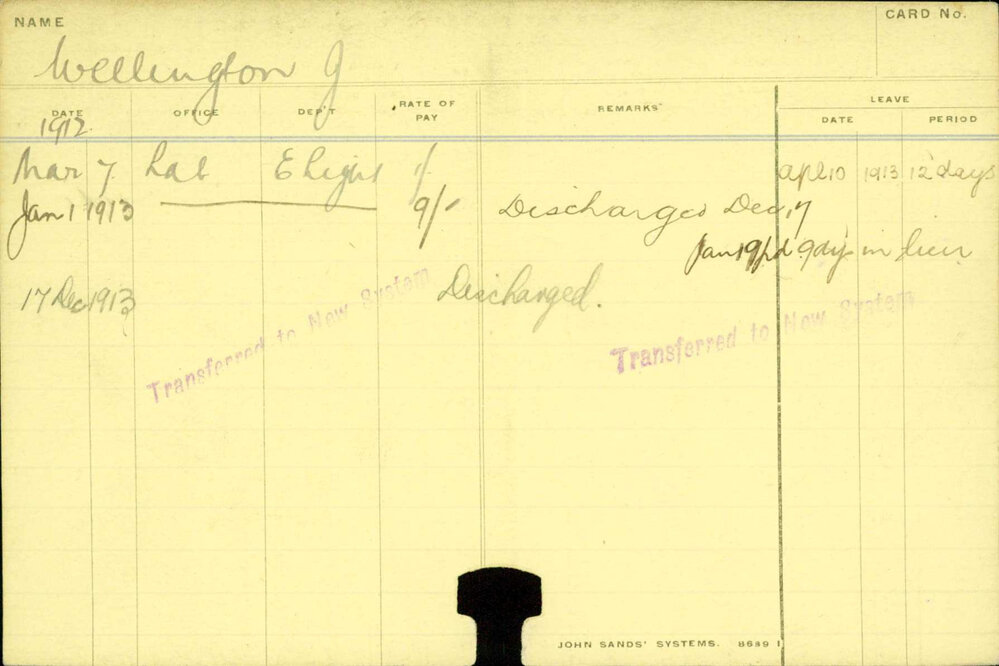 NAME
CARD No.
Wellington J
DATE OFFICE DEP'T RATE OF PAY REMARKS LEAVE
DATE PERIOD
1912
Mar 7 Lab E Light Apl 10 1913 12 days
Jan 1 1913 9/- Discharged Dec 17
Jan 19 pd 9 dys in lieu
17 Dec 1913 Discharged.
Transferred to New System
Transferred to New System
JOHN SANDS' SYSTEMS. 8689 1